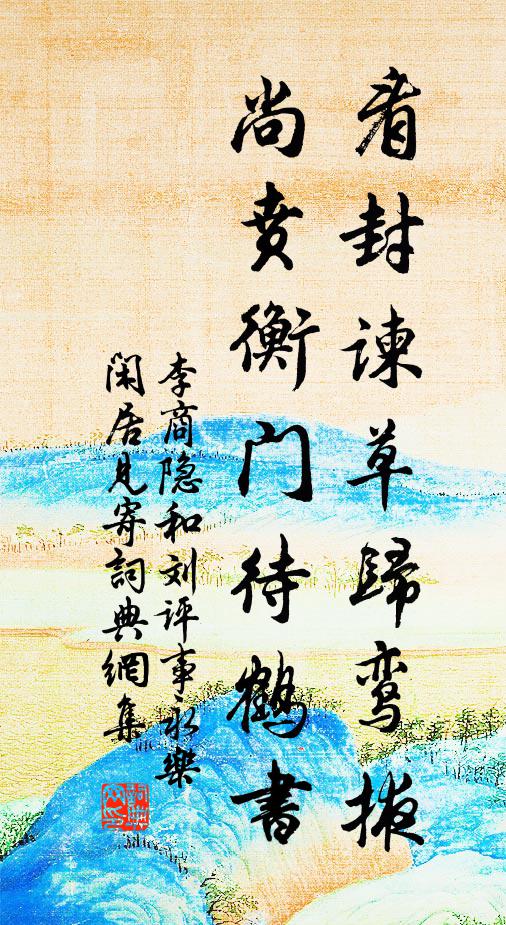 看封谏草歸鸾掖
尚贲衡门待鹤書
李商隐和刘评事永樂
闲居見寄詞典網集